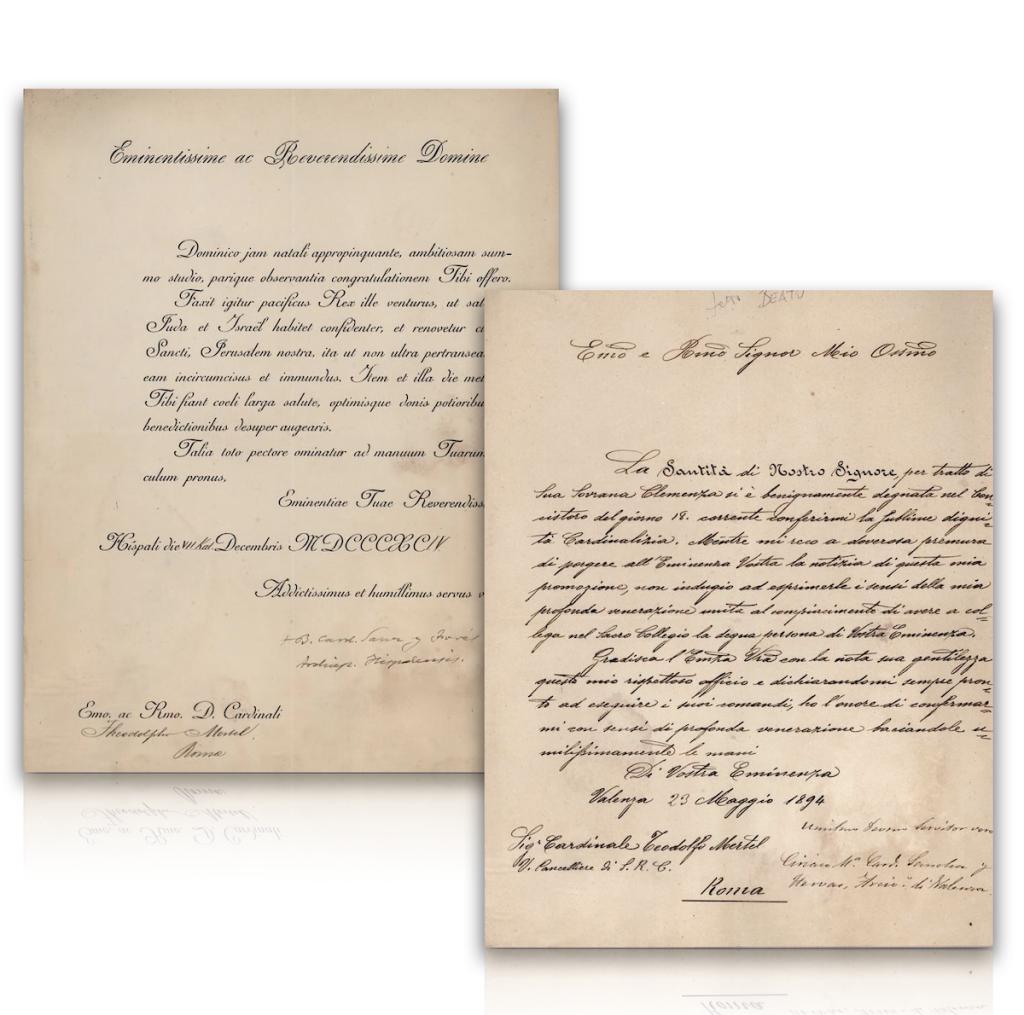 Eminentissime ac Reverendissime Domine
Dominico jam natali appropinquante, ambitiosam sum-
mo studio, parique observantia congratulationem Tibi offero.
Faxit igitur pacificus Rex ille venturus, ut sal
Juda et Israël habitet confidenter, et renovetur ci
Sancti, Jerusalem nostra, ita ut non ultra pertransea
eam incircumcisus et immundus. Item et illa die met
Tibi fiant coeli larga salute, optimisque donis potioribu
benedictionibus desuper augearis.
Talia toto pectore ominatur ad manuum Tuarum
culum pronus,
Eminentiae Tuae Reverendiss
Hispali die VII Kal. Decembris MDCCCXCIV.
Addictissimus et humillimus servus v
+ B. Card. Sanz y Forés
Archiep. Hispalensis.
Emo. ac Rmo. D. Cardinali
Theodolpho Mertel.
Roma
BEATO
Emo e Rmo Signor Mio Ossmo
La Santità di Nostro Signore per tratto di
Sua Sovrana Clemenza si è benignamente degnata nel Con-
cistoro del giorno 18. corrente conferirmi la sublime digni-
tà Cardinalizia. Mentre mi reco a doverosa premura
di porgere all'Eminenza Vostra la notizia di questa mia
promozione, non indugio ad esprimerle i sensi della mia
profonda venerazione unita al compiacimento di avere a col-
lega nel Sacro Collegio la degna persona di Vostra Eminenza.
Gradisca l'Emza Vra con la nota sua gentilezza
questo mio rispettoso officio e dichiarandomi sempre pron-
to ad eseguire i suoi comandi, ho l'onore di confermar-
mi con sensi di profonda venerazione baciandole u-
milissimamente le mani
Di Vostra Eminenza
Valenza 23 Maggio 1894
Sigr Cardinale Teodolfo Mertel
V. Cancelliere di S. R. C.
Roma
Umilmo Devmo Servitor vero
Ciriaco Ma. Card. Sancha y
Hervas, Arciv.o di Valenza